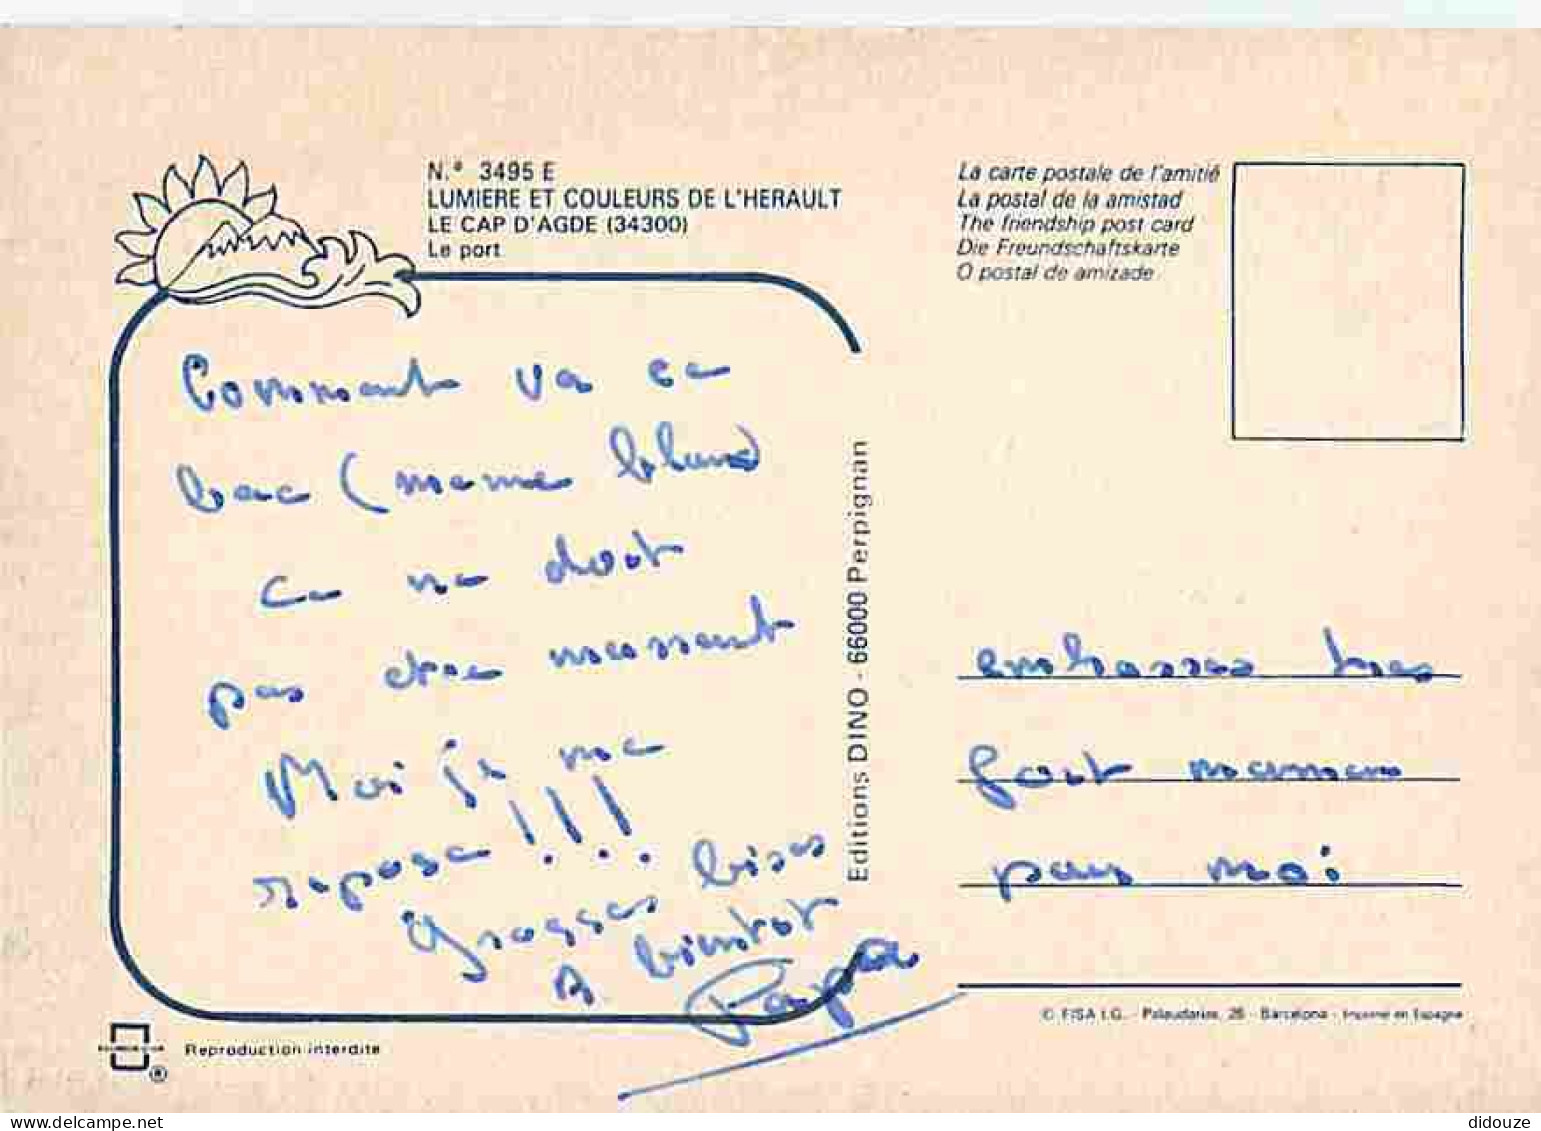 N.º 3495 E
LUMIERE ET COULEURS DE L'HERAULT
LE CAP D'AGDE (34300)
Le port
La carte postale de l'amitié
La postal de la amistad
The friendship post card
Die Freundschaftskarte
O postal de amizade
Comment va ce
bac (meme blanc)
Ce ne doit
pas etre marrant
Moi je me
repose !!!
Grosses bises
A bientot
Papa
Editions DINO - 66000 Perpignan
embrasses tres
fort maman
pour moi
© FISA I.G. - Palaudarias, 26 - Barcelona - Imprimé en Espagne
Reproduction interdite
®
didouze